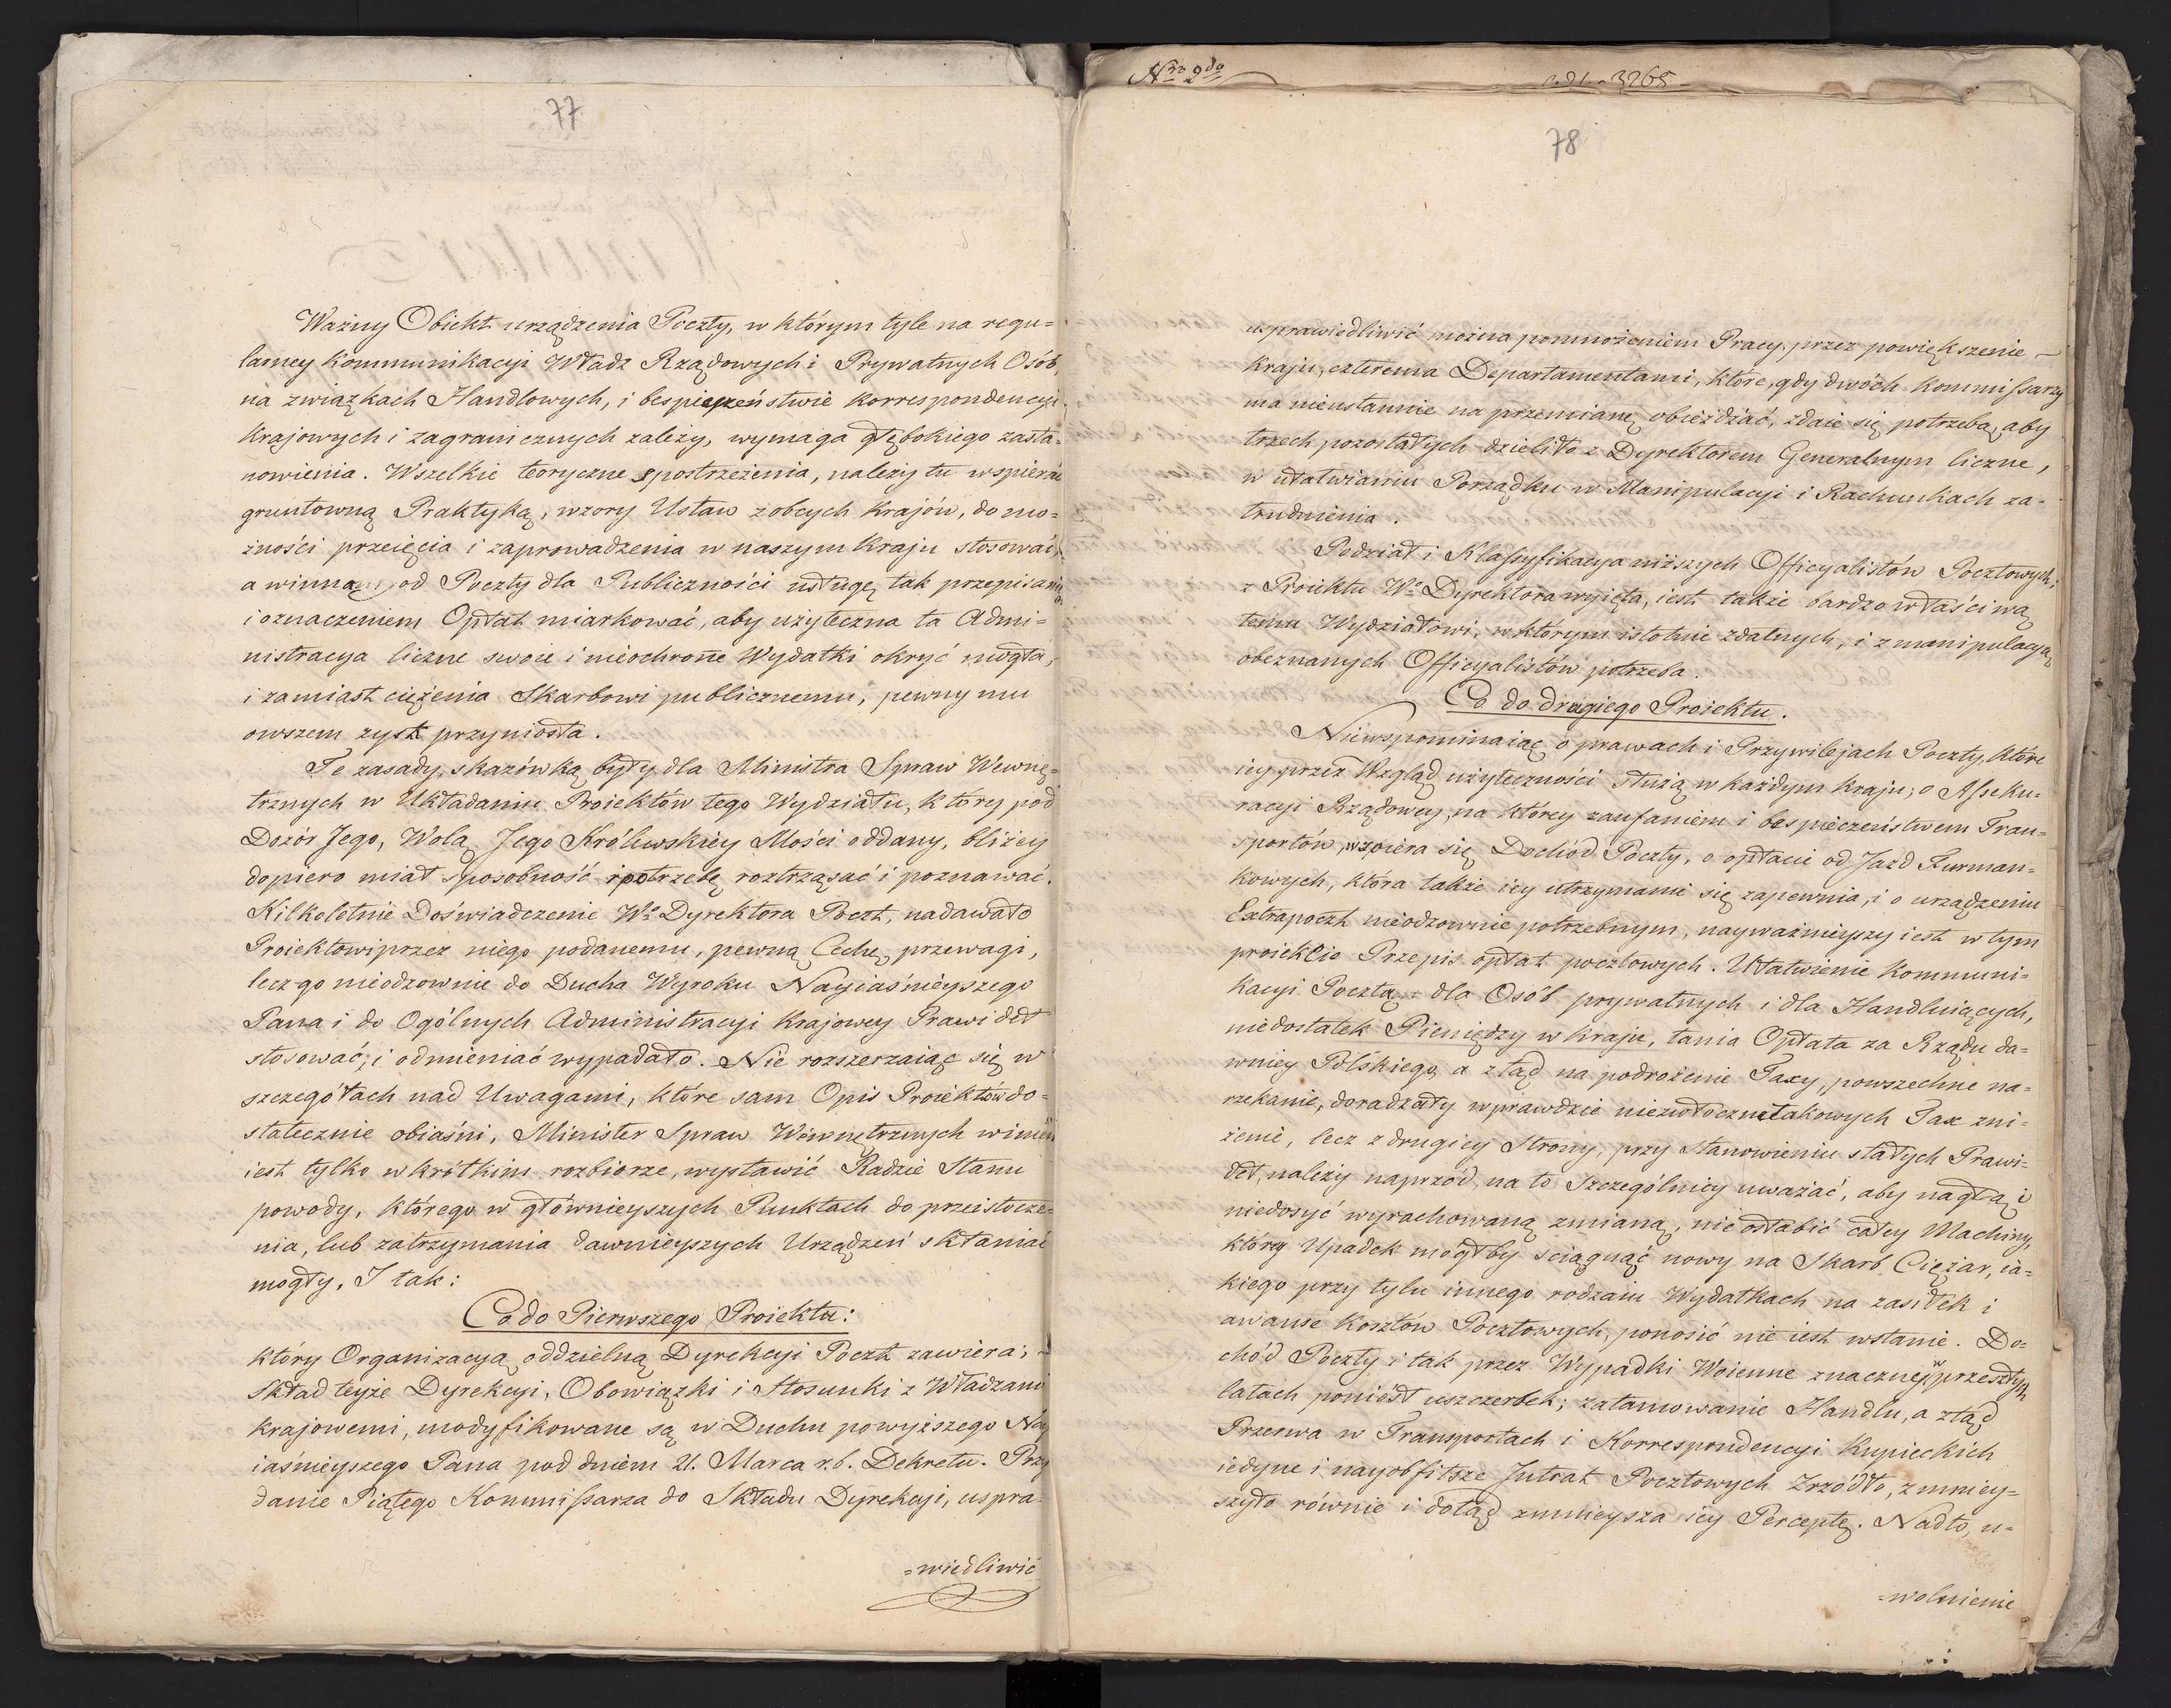 77
Ważny Obiekt urządzenia Poczty, w którym tyle na regu=
larney kommunikacyi Władz Rządowych i Prywatnych Osób,
na związkach Handlowych, i bespieczeństwie korrespondencyi
krajowych i zagranicznych zależy, wymaga głębokiego zasta=
nowienia. Wszelkie teoryczne spostrzeżenia, należy tu wspierać
gruntowną Praktyką, wzory Ustaw z obcych krajów, do mo=
żności przeięcia i zaprowadzenia w naszym kraju stosować,
a winną od Poczty dla Publiczności usługę, tak przepisaniem
i oznaczeniem Opłat miarkować, aby użyteczna ta Admi=
nistracya liczne swoie i nieochronne Wydatki okryć mogła,
i zamiast ciężenia Skarbowi publicznemu, pewny mu
owszem zysk przyniosła.
Te zasady, skazówką były dla Ministra Spraw Wewnę=
trznych w Układaniu Proiektów tego Wydziału, który pod
Dozór Jego, Wolą Jego Królewskiey Mości oddany, bliżey
dopiero miał sposobność i potrzebę roztrząsać i poznawać.
Kilkoletnie Doświadczenie Wo Dyrektora Poczt, nadawało
Proiektowi przez niego podanemu, pewną Cechę, przewagi,
lecz go nieodzownie do Ducha Wyroku Nayiaśnieyszego
Pana i do Ogólnych Administracyi Krajowey Prawideł
stosować, i odmieniać wypadało. Nie rozszerzaiąc się w
szczegółach nad Uwagami, które sam Opis Proiektów do=
statecznie obiaśni, Minister Spraw Wewnętrznych winien
iest tylko w krótkim rozbiorze, wystawić Radzie Stanu
powody, którego w głównieyszych Punktach do przeistocze=
nia, lub zatrzymania dawnieyszych Urządzeń skłaniać
mogły, I tak:
Co do Pierwszego Proiektu:
który Organizacyą oddzielną Dyrekcyi Poczt zawiera;
Skład teyże Dyrekcyi, Obowiązki i Stosunki z Władzami
krajowemi, modyfikowane są w Duchu powyższego Nay
iaśnieyszego Pana pod dniem 21. Marca r.b. Dekretu. Przy
danie Piątego Kommissarza do Składu Dyrekcyi, uspra=
=wiedliwić
Nro 2do
ad 1. 3265
78
usprawiedliwić można pomnożeniem Pracy, przez powiększenie
kraju, czterema Departamentami, które, gdy dwóch kommissarzy
ma nieustannie na przemianę obieżdżać, zdaie się potrzeba, aby
trzech pozostałych dzieliło z Dyrektorem Generalnym liczne,
w ułatwianiu Porządku w Manipulacyi i Rachunkach za=
trudnienia.
Podział i Klassyfikacya niższych Officyalistów Pocztowych,
z Proiektu Wo Dyrektora wyięta, iest także bardzo właściwą
temu Wydziałowi, w którym istotnie zdatnych, i z manipulacyą
obeznanych Officyalistów potrzeba.
Co do drugiego Proiektu.
Niewspominaiąc o prawach i Przywilejach Poczty, które
iey przez Wzgląd użyteczności służą w każdym kraju; o Asseku=
racyi Rządowey, na którey zaufaniem i bespieczeństwem Tran=
sportów, wspiera się Dochód Poczty, o opłacie od Jazd Furman=
kowych, która także iey utrzymanie się zapewnia, i o urządzeniu
Extrapoczt nieodzownie potrzebnym, nayważnieyszy iest w tym
proiekcie Przepis opłat pocztowych. Ułatwienie kommuni=
kacyi Pocztą dla Osób prywatnych i dla Handluiących,
niedostatek Pieniędzy w kraju, tania Opłata za Rządu da=
wniey Polskiego, a ztąd na podrożenie Taxy, powszechne na=
rzekanie, doradzały wprawdzie niezwłoczne takowych Tax zni=
żenie, lecz z drugiey Strony, przy Stanowieniu stałych Prawi=
deł, należy naprzód, na to szczególniey uważać, aby nagłą i
niedosyć wyrachowaną zmianą, nie osłabić całey Machiny,
którey Upadek mógłby ściągnąć nowy na Skarb Ciężar, ia=
kiego przy tylu innego rodzaiu Wydatkach na zasiłek i
awanse Kosztów Pocztowych, ponosić nie iest wstanie. Do=
chód Poczty i tak przez Wypadki Woienne znaczny w przeszłych
latach poniósł uszczerbek; zatamowanie Handlu, a ztąd
Przerwa w Transportach i Korrespondencyi kupieckich
iedyne i nayobfitsze Intrat Pocztowych Zrzódło, zmniey=
szyło równie i dotąd zmnieysza iey Perceptę. Nadto, u=
=wolnienie